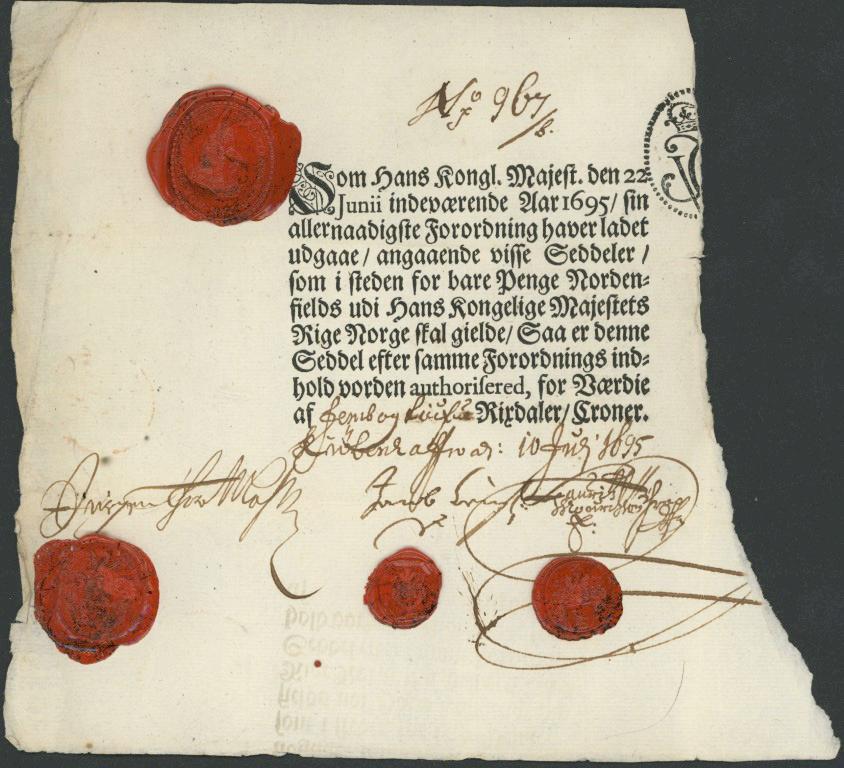 No 967
Som Hans Kongl. Majest. den 22
Junii indeværende Aar 1695/ sin
allernaadigste Forordning haver ladet
udgaae/ angaaende visse Seddeler/
som i steden for bare Penge Norden=
fields udi Hans Kongelige Majestets
Rige Norge skal gielde/ Saa er denne
Seddel efter samme Forordnings ind=
hold vorden authorisered, for Værdie
af Rixdaler/ Croner.
10 Julj 1695
Jørgen thor Møhlen